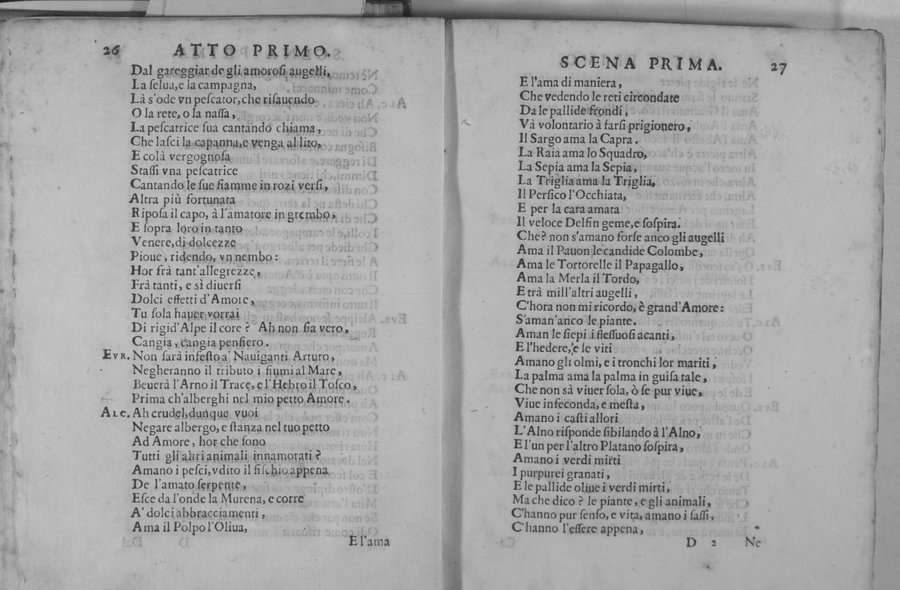 26 ATTO PRIMO.
Dal gareggiar de gli amorosi augelli,
La selua, e la campagna,
Là s'ode vn pescator, che risuendo
O la rete, o la nassa,
La pescatrice sua cantando chiama,
Che lasci la capanna, e venga al lito,
E colà vergognosa
Stassi vna pescatrice
Cantando le sue fiamme in rozi versi,
Altra più fortunata
Riposa il capo, à l'amatore in grembo,
E sopra loro in tanto
Venere, di dolcezze
Pioue, ridendo, vn nembo:
Hor frà tant'allegrezze,
Frà tanti, e sì diuersi
Dolci effetti d'Amore,
Tu sola hauer vorrai
Di rigid'Alpe il core? Ah non sia vero,
Cangia, cangia pensiero.
EVR. Non sarà infesto a' Nauiganti Arturo,
Negheranno il tributo i fiumi al Mare,
Beuerà l'Arno il Trace, e l'Hebro il Tosco,
Prima ch'alberghi nel mio petto Amore.
ALC. Ah crudel, dunque vuoi
Negare albergo, e stanza nel tuo petto
Ad Amore, hor che sono
Tutti gli altri animali innamorati?
Amano i pesci, vdito il fischio appena
De l'amato serpente,
Esce da l'onde la Murena, e corre
A' dolci abbracciamenti,
Ama il Polpo l'Oliua,
E l'ama
SCENA PRIMA. 27
E l'ama di maniera,
Che vedendo le reti circondate
Da le pallide frondi,
Và volontario à farsi prigionero,
Il Sargo ama la Capra.
La Raia ama lo Squadro,
La Sepia ama la Sepia,
La Triglia ama la Triglia,
Il Persico l'Occhiata,
E per la cara amata
Il veloce Delfin geme, e sospira.
Che? non s'amano forse anco gli augelli
Ama il Pauon le candide Colombe,
Ama le Tortorelle il Papagallo,
Ama la Merla il Tordo,
E trà mill'altri augelli,
C'hora non mi ricordo, è grand'Amore:
S'aman'anco le piante.
Aman le siepi i flessuosi acanti,
E l'hedere, e le viti
Amano gli olmi, e i tronchi lor mariti,
La palma ama la palma in guisa tale,
Che non sà viuer sola, ò se pur viue,
Viue infeconda, e mesta,
Amano i casti allori
L'Alno risponde sibilando à l'Alno,
E l'un per l'altro Platano sospira,
Amano i verdi mirti
I purpurei granati,
E le pallide oliue i verdi mirti,
Ma che dico? le piante, e gli animali,
C'hanno pur senso, e vita, amano i sassi,
C'hanno l'essere appena,
D 2 Ne